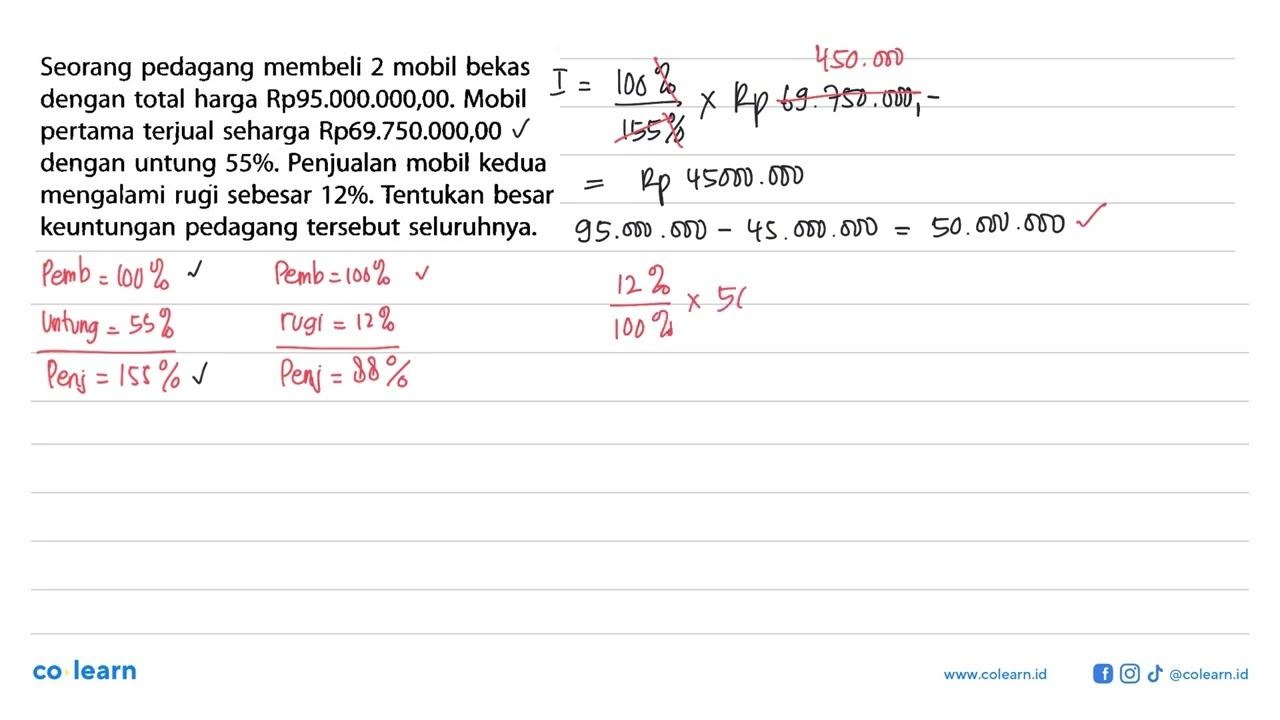 Seorang pedagang membeli 2 mobil bekas
dengan total harga Rp95.000.000,00. Mobil
pertama terjual seharga Rp69.750.000,00 ✓
dengan untung 55%. Penjualan mobil kedua
mengalami rugi sebesar 12%. Tentukan besar
keuntungan pedagang tersebut seluruhnya.
Pemb = 100% ✓
Untung = 55%
Penj = 155% ✓
Pemb = 100% ✓
rugi = 12%
Penj = 88%
450.000
I = 100% / 155% × Rp 69.750.000,-
= Rp 45000.000
95.000.000 - 45.000.000 = 50.000.000 ✓
12% / 100% × 50
co learn
www.colearn.id
@colearn.id